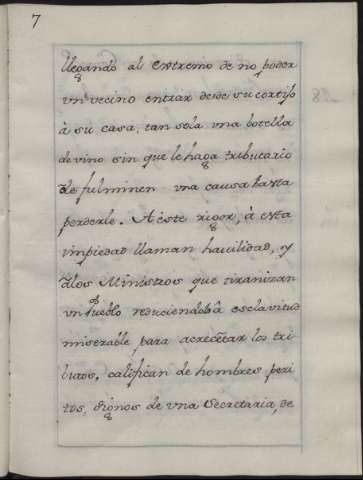 7
llegando al extremo de no poder
un vecino entrar desde su cortijo
à su casa, tan sola una botella
de vino sin que le haga tributario
ò le fulminen una causa hasta
perderle. A este rigor, à esta
impiedad llaman havilidad, y
à los Ministros que tiranizan
un Pueblo reduciendolo à esclavitud
miserable para acrecẽtar los tri-
butos, califican de hombres peri-
tos, dignos de una Secretaria, de